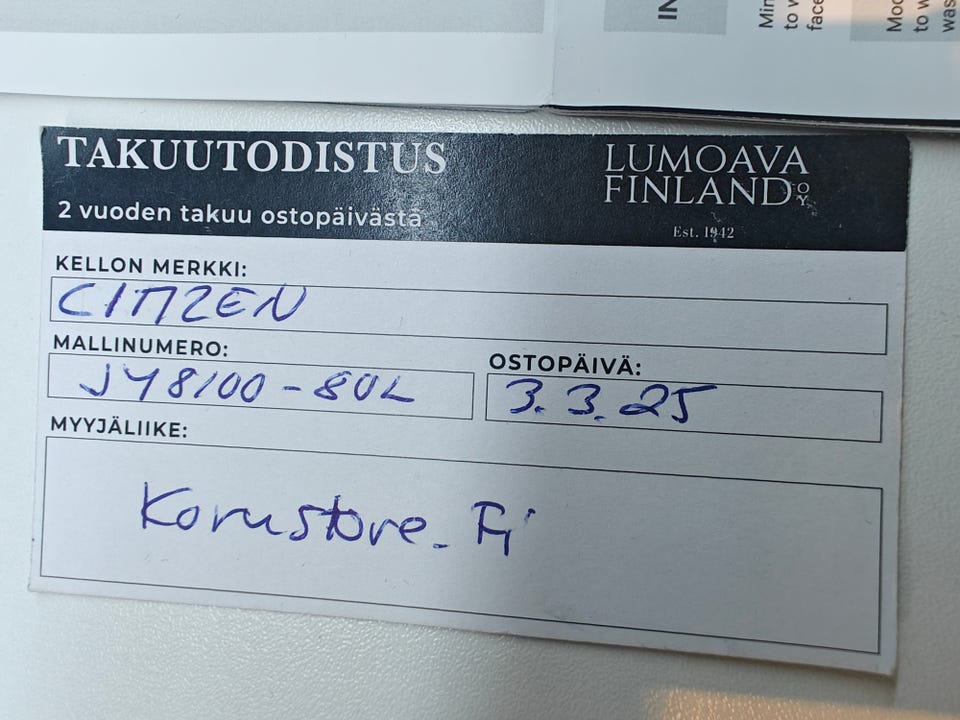 IN
Min
to w
face
Moo
to w
was
TAKUUTODISTUS
2 vuoden takuu ostopäivästä
LUMOAVA
FINLAND OY
Est. 1942
KELLON MERKKI:
CITIZEN
MALLINUMERO:
JY8100-80L
OSTOPÄIVÄ:
3.3.25
MYYJÄLIIKE:
Korustore.Fi